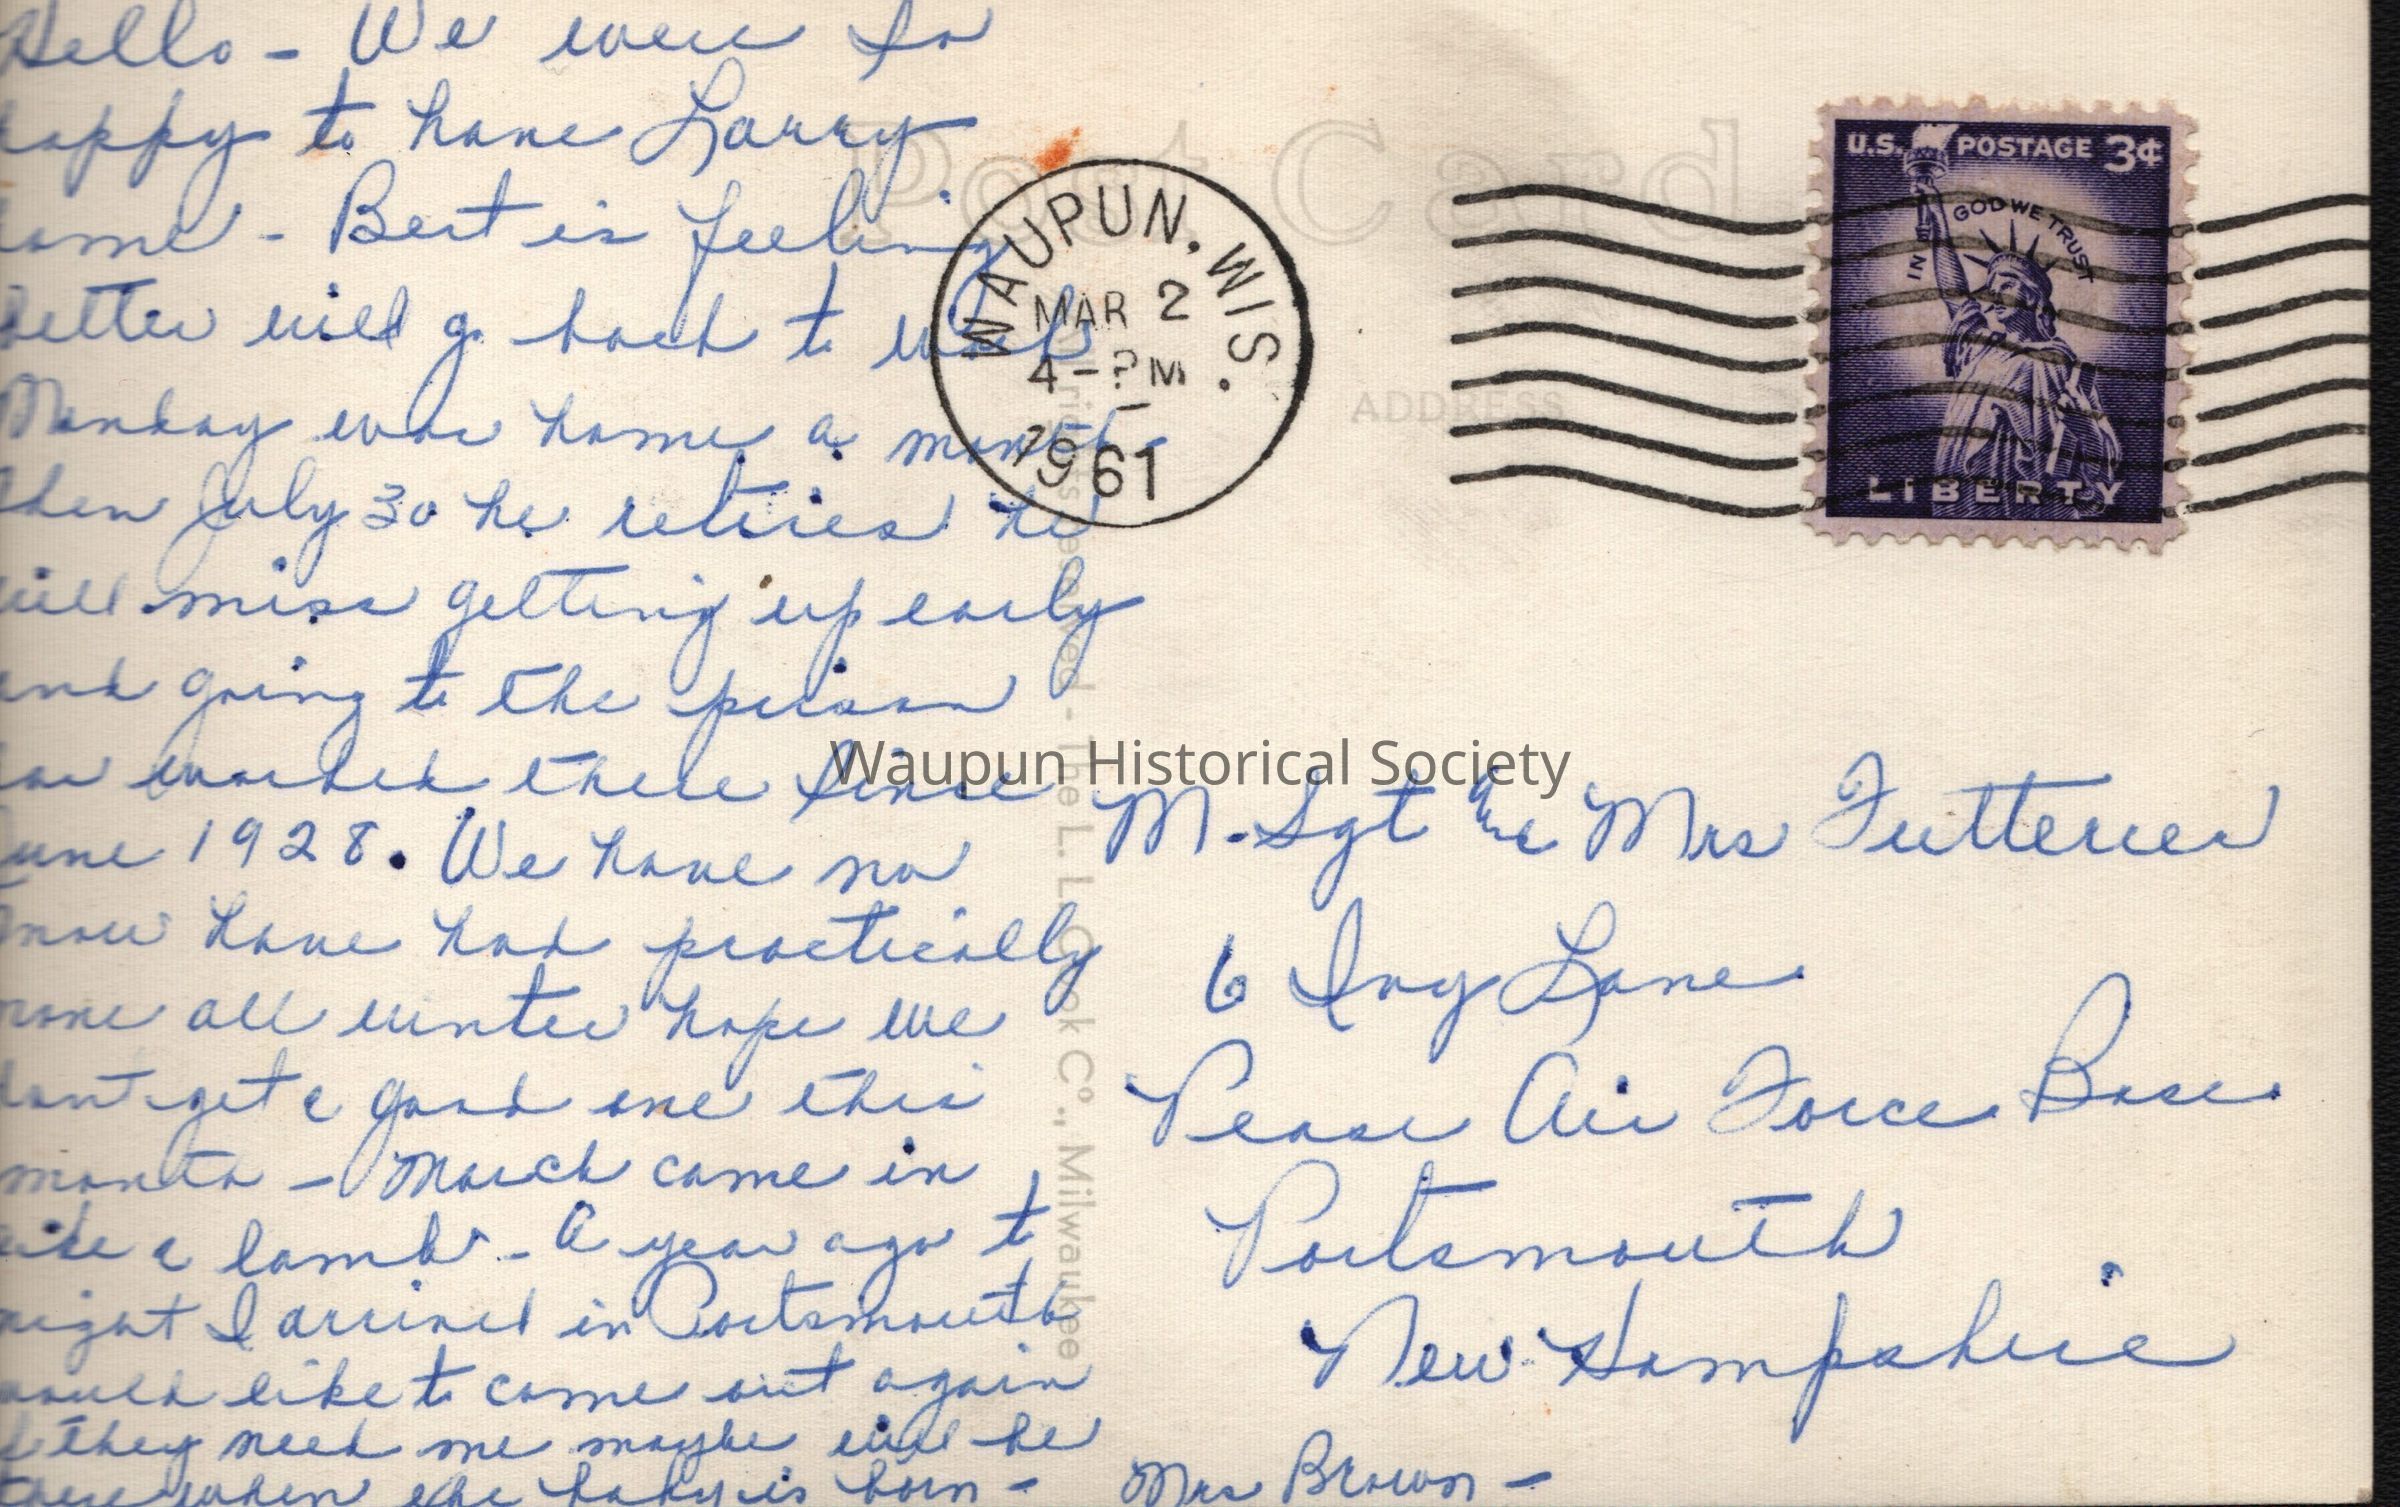 Hello - We were so
happy to have Larry
home - Bert is feeling
better will go back to work
Monday was home a month -
then July 30 he retires he
will miss getting up early
and going to the prison
has worked there since
June 1928. We have no
snow have had practically
none all winter hope we
don't get a good one this
month - March came in
like a lamb - A year ago to
night I arrived in Portsmouth
would like to come out again
if they need me maybe will be
there when the baby is born -
Mrs Brown -
Post Card
ADDRESS
WAUPUN, WIS.
MAR 2
4 - PM
1961
U.S. POSTAGE 3¢
IN GOD WE TRUST
LIBERTY
M. Sgt and Mrs Futterer
6 Ivy Lane
Pease Air Force Base
Portsmouth
New Hampshire
The L. L. Cook Co., Milwaukee
Waupun Historical Society